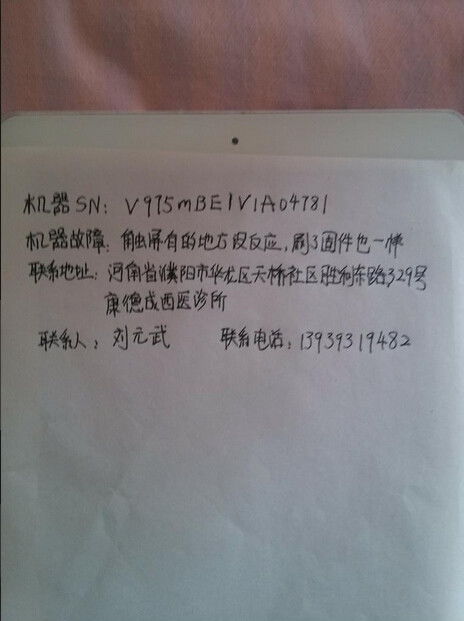 机器SN: V975mBE1V1A04781
机器故障: 触屏有的地方没反应,刷了固件也一样
联系地址: 河南省濮阳市华龙区天桥社区胜利东路329号
康德成西医诊所
联系人: 刘元武 联系电话: 13939319482